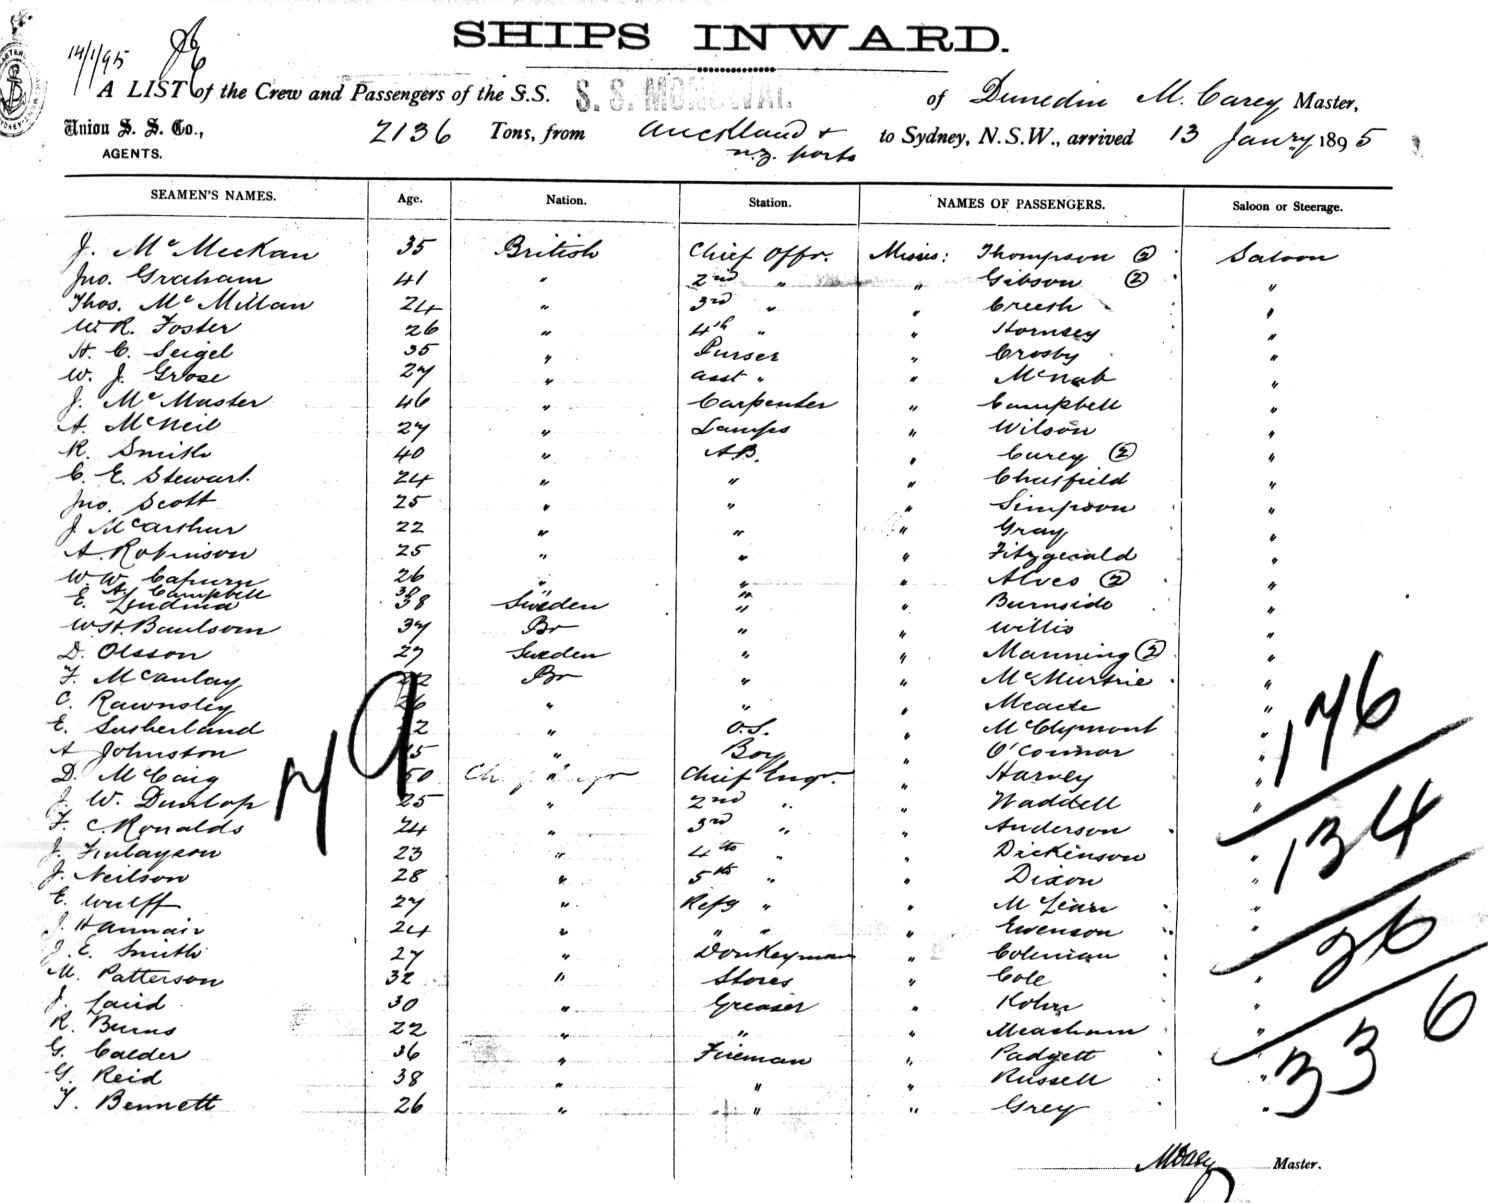 SHIPS INWARD.
14/1/95
A LIST of the Crew and Passengers of the S.S. S. S. MONOWAI. of Dunedin M. Carey, Master,
Union S. S. Co., 2136 Tons, from Auckland & to Sydney, N.S.W., arrived 13 Janry 1895
AGENTS. N.Z. ports
SEAMEN'S NAMES. Age. Nation. Station. NAMES OF PASSENGERS. Saloon or Steerage.
J. McMeckan 35 British Chief Offr. Misses: Thompson ② Saloon
Jno. Graham 41 " 2nd " " Gibson ② "
Thos. McMillan 24 " 3rd " " Creesh "
W. R. Foster 26 " 4th " " Hornsey "
H. C. Seigel 35 " Purser " Crosby "
W. J. Grose 27 " asst " " McNab "
J. McMaster 46 " Carpenter " Campbell "
A. McNeil 27 " Lamps " Wilson "
R. Smith 40 " A.B. " Carey ② "
C. E. Stewart 24 " " " Chatfield "
Jno. Scott 25 " " " Simpson "
J. McArthur 22 " " " Gray "
A. Robinson 25 " " " Fitzgerald "
W. W. Capurn 26 " " " Alves ② "
A. Campbell 38 " "
E. Lindma 38 Sweden " " Burnside "
W. H. Baulsom 37 Br " " Willis "
D. Olsson 27 Sweden " " Manning ② "
F. McAulay 22 Br " " McMurtrie "
C. Rawnsley 26 " " " Meade "
E. Sutherland 22 " O.S. " McClymont "
A Johnston 15 " Boy " O'Connor "
D. McCaig 50 " Chief Engr. " Harvey "
J. W. Dunlop 25 " 2nd " " Waddell "
F. C. Ronalds 24 " 3rd " " Anderson "
J. Finlayson 23 " 4th " " Dickinson "
J. Neilson 28 " 5th " " Dixon "
E. Wulff 27 " Refg " " McLean "
J. Hannair 24 " " " " Ewenson "
J. E. Smith 27 " Donkeyman " Coleman "
M. Patterson 32 " Stores " Cole "
J. Laird 30 " Greaser " Kohn "
R. Burns 22 " " " Meacham "
G. Calder 36 " Fireman " Padgett "
G. Reid 38 " " " Russell "
T. Bennett 26 " " " Grey "
79
176
134
26
336
MCarey Master.